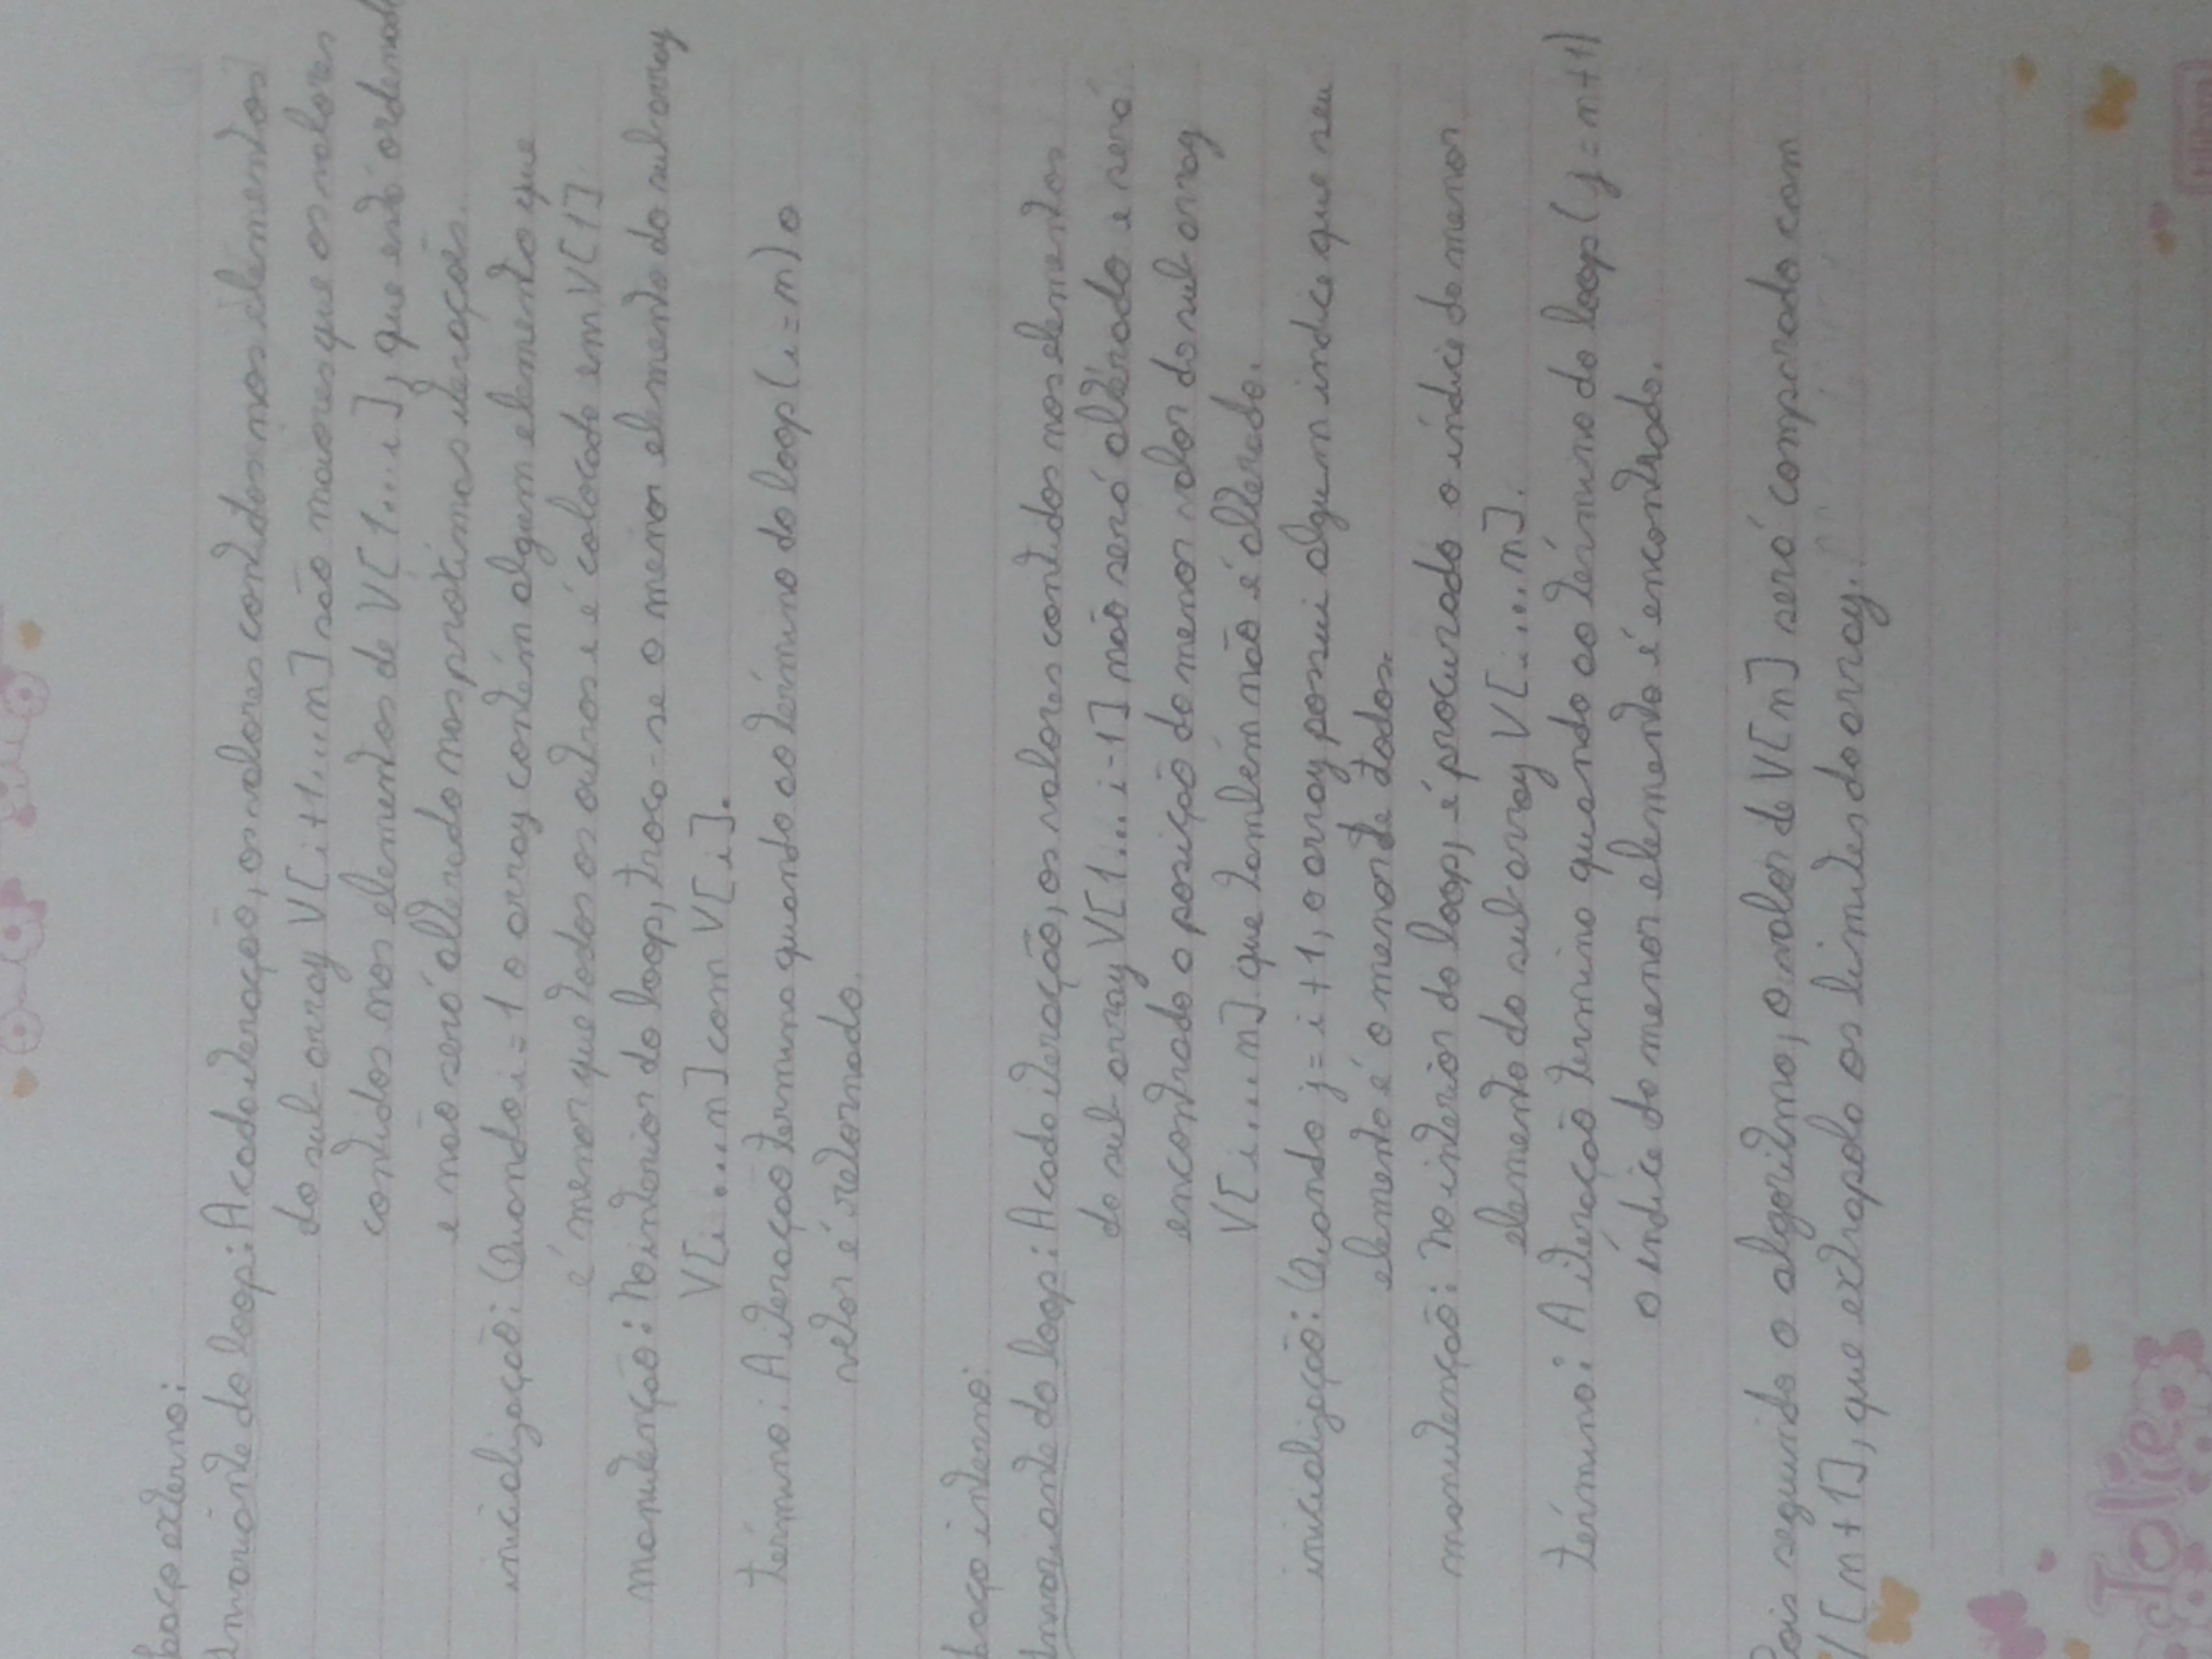 Laço externo:
Invariante do loop: A cada iteração, os valores contidos nos elementos
do sub-array V[i+1...n] são maiores que os valores
contidos nos elementos de V[1...i], que está ordenado
e não será alterado nas próximas iterações.
inicialização: Quando i=1 o array contém algum elemento que
é menor que todos os outros e é colocado em V[1]
manutenção: No interior do loop, troca-se o menor elemento do sub-array
V[i...n] com V[i].
término: A iteração termina quando ao término do loop (i=n) o
vetor é retornado.
Laço interno:
Invariante do loop: A cada iteração, os valores contidos nos elementos
do sub-array V[1...i-1] não será alterado e será
encontrado a posição do menor valor do sub-array
V[i...n] que também não é alterado.
inicialização: Quando j=i+1, o array possui algum indice que seu
elemento é o menor de todos.
manutenção: No interior do loop, é procurado o índice do menor
elemento do sub-array V[i...n].
término: A iteração termina quando ao término do loop (j=n+1)
o índice do menor elemento é encontrado.
Pois segundo o algoritmo, o valor de V[n] será comparado com
V[n+1], que extrapola os limites do array.
Jolie